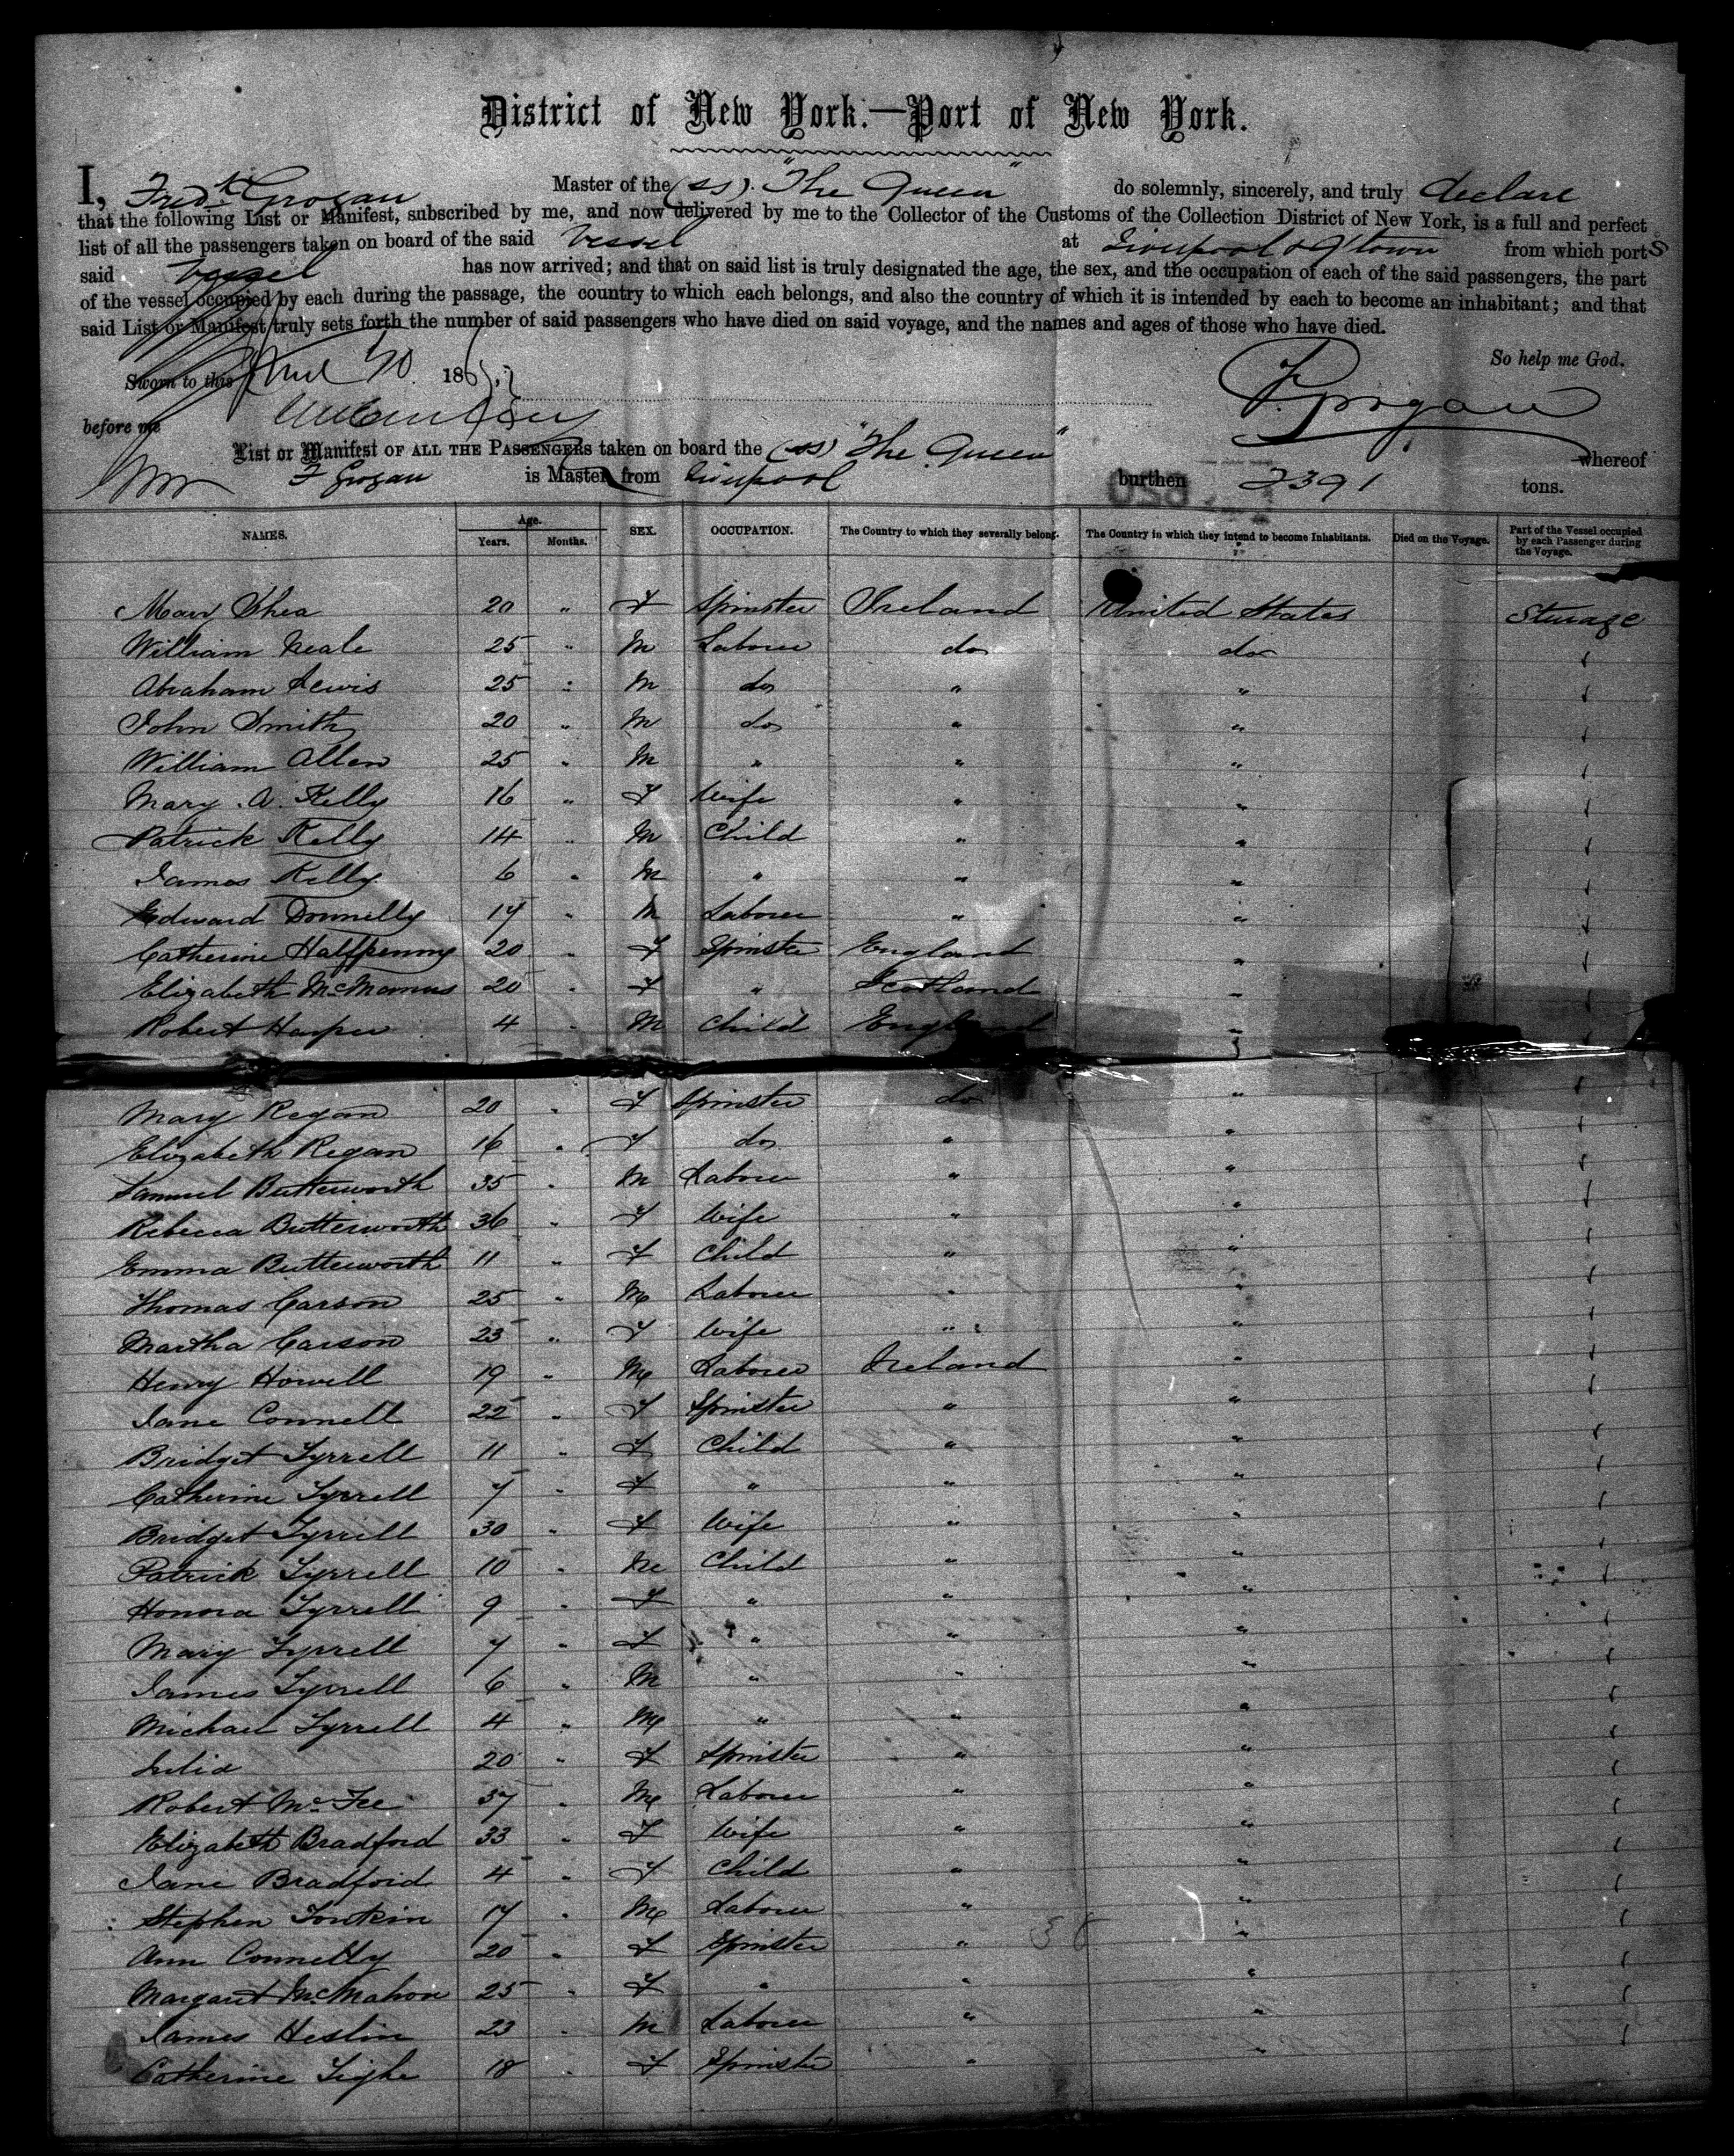 District of New York.—Port of New York.
I, Fredk Grogan Master of the (ss). "The Queen" do solemnly, sincerely, and truly declare
that the following List or Manifest, subscribed by me, and now delivered by me to the Collector of the Customs of the Collection District of New York, is a full and perfect
list of all the passengers taken on board of the said Vessel at Liverpool & Q'town from which ports
said Vessel has now arrived; and that on said list is truly designated the age, the sex, and the occupation of each of the said passengers, the part
of the vessel occupied by each during the passage, the country to which each belongs, and also the country of which it is intended by each to become an inhabitant; and that
said List or Manifest truly sets forth the number of said passengers who have died on said voyage, and the names and ages of those who have died.
So help me God.
Sworn to this 186
F. Grogan
before me
List or Manifest OF ALL THE PASSENGERS taken on board the (ss) "The Queen" whereof
F Grogan is Master from Liverpool burthen 2391 tons.
NAMES. Age. Years. Months. SEX. OCCUPATION. The Country to which they severally belong. The Country in which they intend to become Inhabitants. Died on the Voyage. Part of the Vessel occupied by each Passenger during the Voyage.
Mary Shea 20 " F Spinster Ireland United States Steerage
William Neale 25 " M Laborer do do
Abraham Lewis 25 " M do " "
John Smith 20 " M do " "
William Allen 25 " M " " "
Mary A. Kelly 16 " F Wife " "
Patrick Kelly 14 " M Child " "
James Kelly 6 " M " " "
Edward Donnelly 17 " M Laborer " "
Catherine Halfpenny 20 " F Spinster England "
Elizabeth McManus 20 " F " Scotland "
Robert Harper 4 " M Child England "
Mary Regan 20 " F Spinster do "
Elizabeth Regan 16 " F do " "
Samuel Butterworth 35 " M Laborer " "
Rebecca Butterworth 36 " F Wife " "
Emma Butterworth 11 " F Child " "
Thomas Carson 25 " M Laborer " "
Martha Carson 23 " F Wife " "
Henry Howell 19 " M Laborer Ireland "
Jane Connell 22 " F Spinster " "
Bridget Tyrrell 11 " F Child " "
Catherine Tyrrell 7 " F " " "
Bridget Tyrrell 30 " F Wife " "
Patrick Tyrrell 10 " M Child " "
Honora Tyrrell 9 " F " " "
Mary Tyrrell 7 " F " " "
James Tyrrell 6 " M " " "
Michael Tyrrell 4 " M " " "
Julia 20 " F Spinster " "
Robert McFee 37 " M Laborer " "
Elizabeth Bradford 33 " F Wife " "
Jane Bradford 4 " F Child " "
Stephen Tonkin 17 " M Laborer " "
Ann Connelly 20 " F Spinster " "
Margaret McMahon 25 " F " " "
James Heslin 23 " M Laborer " "
Catherine Tighe 18 " F Spinster " "